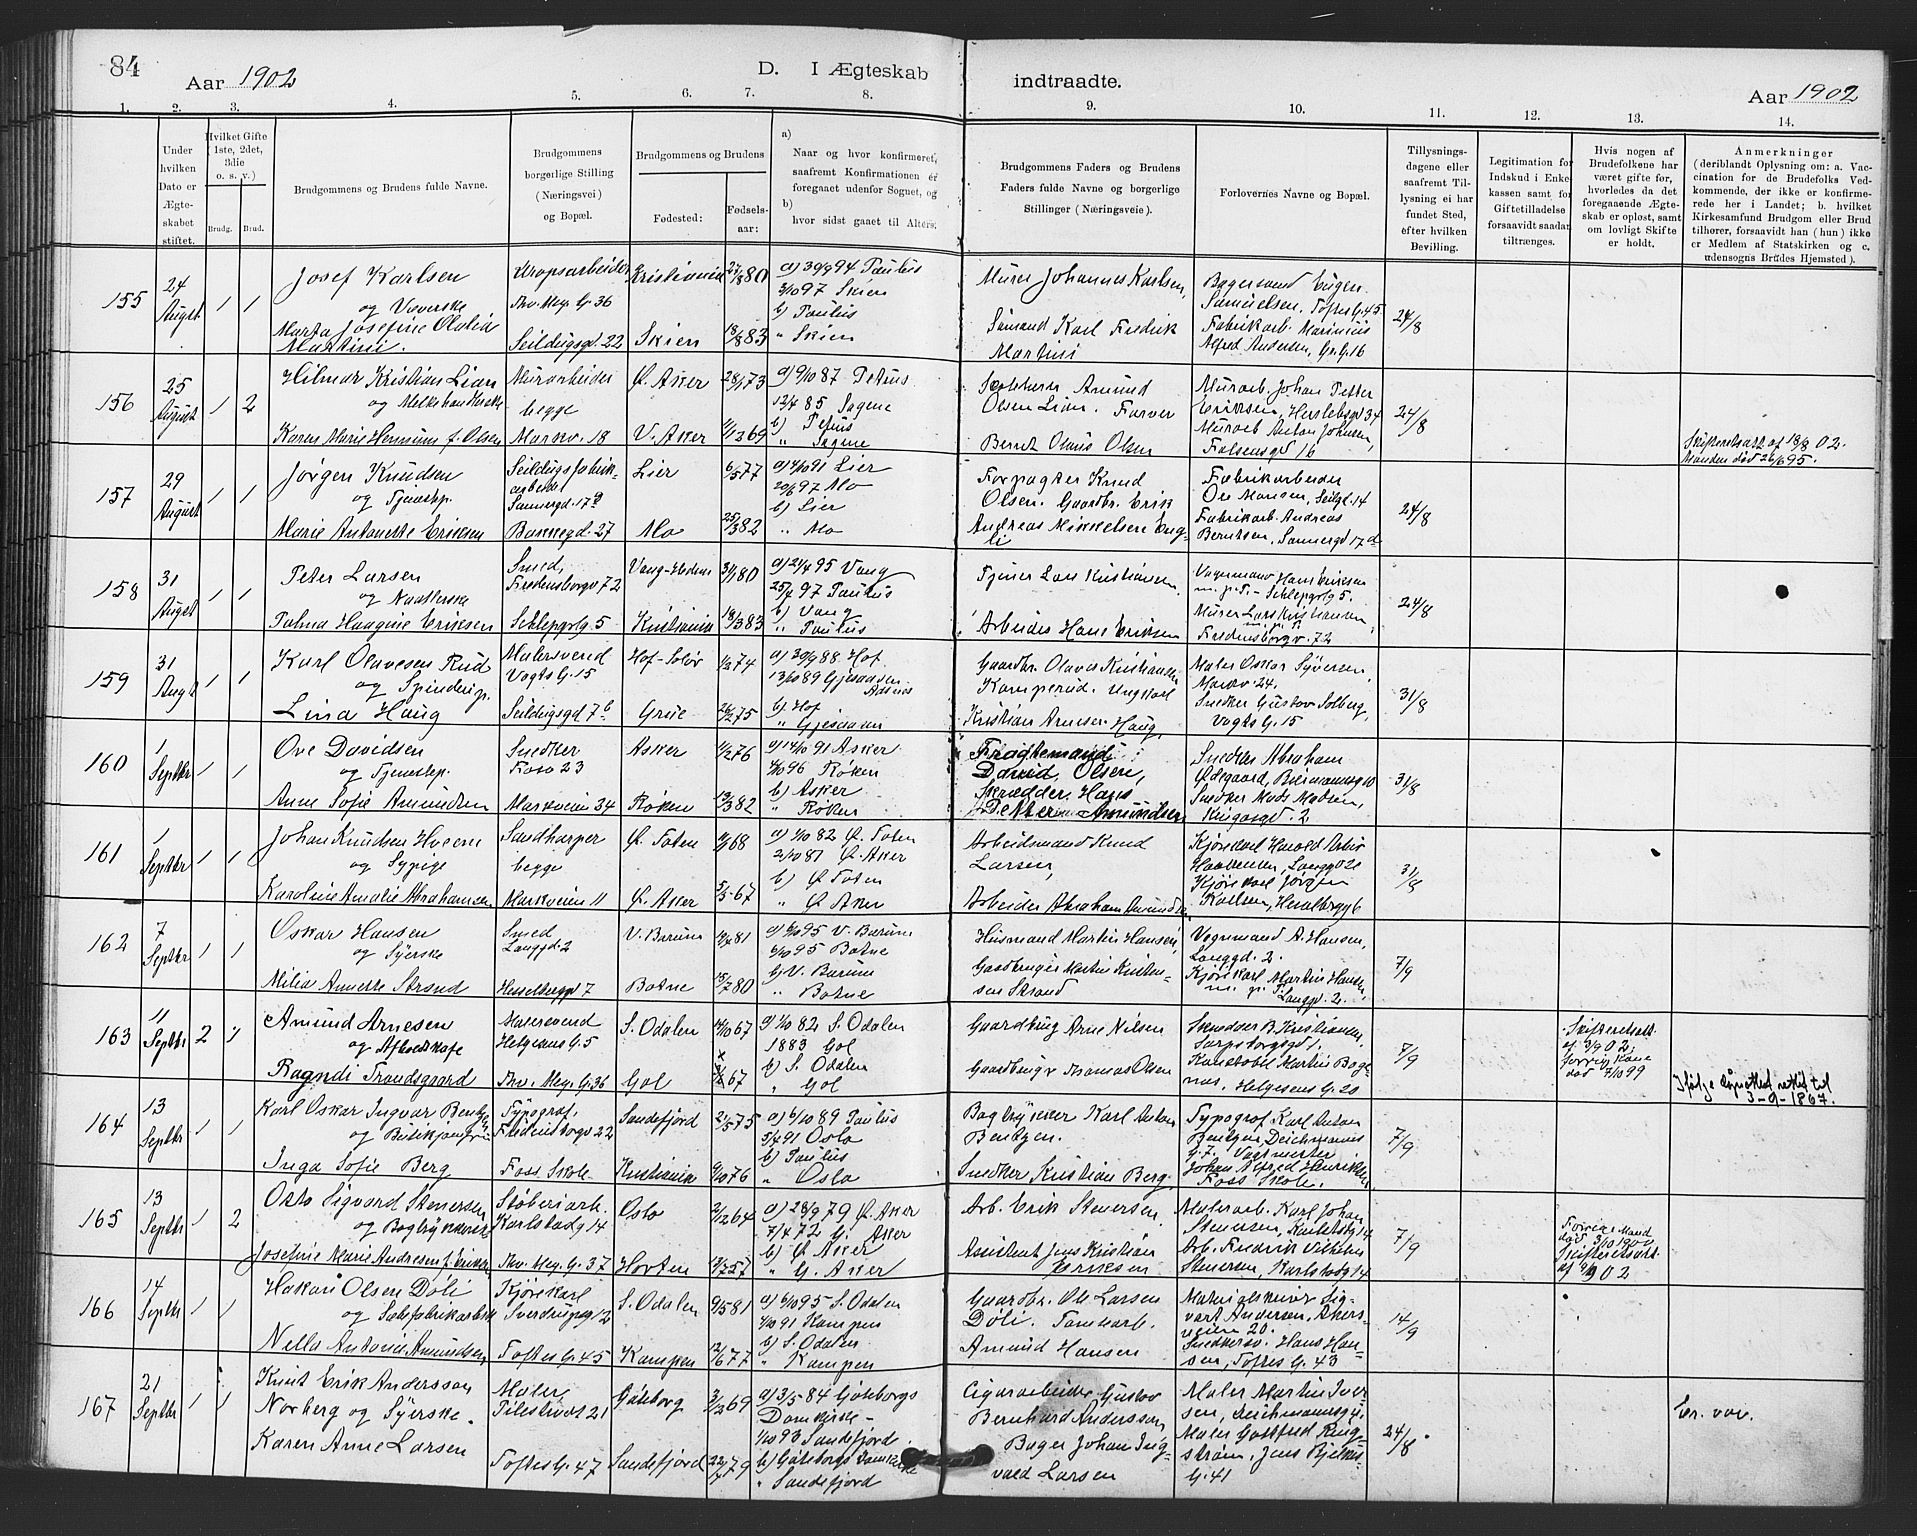 84
Aar 1902
D. I Ægteskab
indtraadte.
Aar 1902
1. 2. 3. 4. 5. 6. 7. 8. 9. 10. 11. 12. 13. 14.
Under hvilken Dato er Ægteskabet stiftet.
Hvilket Gifte (1ste, 2det, 3die o. s. v.)
Brudg. Brud.
Brudgommens og Brudens fulde Navne.
Brudgommens borgerlige Stilling (Næringsvei) og Bopæl.
Brudgommens og Brudens
Fødested:
Fødselsaar:
a) Naar og hvor konfirmeret, saafremt Konfirmationen er foregaaet udenfor Sognet, og
b) hvor sidst gaaet til Alters.
Brudgommens Faders og Brudens Faders fulde Navne og borgerlige Stillinger (Næringsveie).
Forlovernes Navne og Bopæl.
Tillysningsdagene eller saafremt Tillysning ei har fundet Sted, efter hvilken Bevilling.
Legitimation for Indskud i Enkekassen samt for Giftetilladelse forsaavidt saadan tiltrænges.
Hvis nogen af Brudefolkene har været gifte før, hvorledes da det foregaaende Ægteskab er opløst, samt om lovligt Skifte er holdt.
Anmerkninger (deriblandt Oplysning om: a. Vaccination for de Brudefolks Vedkommende, der ikke er konfirmerede her i Landet; b. hvilket Kirkesamfund Brudgom eller Brud tilhører, forsaavidt han (hun) ikke er Medlem af Statskirken og c. udensogns Brudes Hjemsted).
155
24 August
1 1
Josef Karlsen
og Væverske
Marta Josefine Olalia Martini.
Kropsarbeider
Thv. Mey. G. 36
Seildugsgd. 22
Kristiania
Skien
27/8 80
18/8 83
a) 30/9 94 Paulus
3/10 97 Skien
b) Paulus
" Skien
Murer Johannes Karlsen,
Sømand Karl Fredrik Martini
Bagersvend Eugen Samuelsen, Toftes G. 45
Fabrikarb. Marinius Alfred Andersen, Gr. G. 16
24/8
156
25 August
1 2
Hilmar Kristian Lian
og Melkehandlerske
Karen Marie Hermine f. Olsen
Murarbeider
begge
Markv. 18
Ø. Aker
V. Aker
28/1 73
a) 9/10 87 Petrus
12/4 85 Sagene
b) Petrus
" Sagene
Amund Olsen Lian. Farver
Bernt Olaus Olsen
Murarb. Johan Petter Eriksen, Herslebsgd 34
Murarb. Anton Johnsen, Falsensgd 16
24/8
Skifteretsatt af 18/8 02.
Manden død 26/6 95.
157
29 August
1 1
Jørgen Knudsen
og Tjenestep.
Marie Antonette Eriksen
Seildugsfabrikarbeider
Sannergd. 17d
Bakkegd. 27
Lier
Mo
6/5 77
25/3 82
a) 4/10 91 Lier
20/6 97 Mo
b) Lier
" Mo
Forpagter Knud Olsen. Gaardbr. Erik
Andreas Mikkelsen Engli
Fabrikarbeider Ole Hansen, Seilgd. 14
Fabrikarb. Andreas Berntsen, Sannergd 17d
24/8
158
31 August
1 1
Peter Larsen
og Naatlerske
Palma Haagine Eriksen
Smed,
Fredensborgv 72
Schleppgdg 5
Vang-Hedem
Kristiania
31/1 80
18/3 83
a) 21/4 95 Vang
25/4 97 Paulus
b) Vang
" Paulus
Tjener Lars Kristiansen
Arbeider Hans Eriksen
Vognmand Hans Eriksen
m. p. P. - Schleppgdg 5.
Murer Lars Kristiansen, m. p. P.
Fredensborgv. 72
24/8
159
31 Augt
1 1
Karl Olavesen Rud
og Spinderip.
Lina Haug
Malersvend
Vogts G. 15
Seildugsgd 7b
Hof-Solør
Grue
1/2 74
26/2 75
a) 30/9 88 Hof
13/10 89 Gjesaasen
b) Hof
" Gjesaasen
Gaardbr. Olaves Kristiansen Kamperud. Ungkarl
Kristian Arnesen Haug,
Maler Oskar Syversen, Markv 24.
Snedker Gustav Solberg, Vogts G. 15
31/8
160
1 Septbr
1 1
Ove Davidsen
og Tjenestep.
Anne Sofie Amundsen
Snedker
Fosv 23
Markveien 34
Asker
Røken
11/2 76
12/3 82
a) 4/10 91 Asker
4/10 96 Røken
b) Asker
" Røken
Fragtemand David Olsen,
Skrædder Hans Petter Amundsen
Snedker Abraham Ødegaard, Biermannsg 10
Snedker Mads Madsen, Kingosgd. 2
31/8
161
1 Septbr
1 1
Johan Knudsen Hveem
og Sypige
Karoline Amalie Abrahamsen
Sandharper
begge
Markveien 11
Ø. Toten
Ø. Aker
5/5 67
a) 1/10 82 Ø. Toten
2/10 81 Ø. Aker
b) Ø. Toten
" Ø. Aker
Arbeidsmand Knud Larsen,
Arbeider Abraham Amundsen
Kjørekarl Harald
Langgd 2c
Kjørekarl Jørgen Karlsen, Heselbergg 6
31/8
162
7 Septbr
1 1
Oskar Hansen
og Syerske
Milia Annette Strand
Smed
Langgd. 2
Hesselberggd 7
V. Bærum
Botne
19/4 81
15/7 80
a) 6/10 95 V. Bærum
6/10 95 Botne
b) V. Bærum
" Botne
Husmand Martin Hansen,
Gaardbruger Martin Kristensen Strand
Vognmand A. Hansen, Langgd. 2.
Kjørekarl Martin Hansen, m. p. P. Langgd. 2.
7/9
163
11 Septbr
2 1
Amund Arnesen
og Afholdskafe
Ragndi Trondsgaard
Malersvend
Helgesens G. 5
Thv. Mey. G. 36
S. Odalen
Gol
14/10 67
67
a) 1/10 82 S. Odalen
1883 Gol
b) S. Odalen
" Gol
Gaardbrug Arne Nilsen
Gaardbrug Thomas Olsen
B. Kristiansen Sarpsborgsgd 1.
Konstabel Martin Bognæs, Helgesens G. 20
7/9
Skifteretsatt. af 3/9 02;
forrige Kone død 7/10 99
Ifølge Dåpsattest rettet til 3-9-1867.
164
13 Septbr
1 1
Karl Oskar Ingvar Bentzen
og Butikjomfru
Inga Sofie Berg
Typograf,
Fredensborgv 22
Foss Skole
Sandefjord
Kristiania
21/5 75
9/10 76
a) 6/10 89 Paulus
5/4 91 Oslo
b) Paulus
" Oslo
Bogtrykker Karl Anton Bentzen.
Snedker Kristian Berg
Typograf Karl Anton Bentzen Deichmans G. 7. Vagtmester
Johan Alfred Henriksen, Foss Skole.
7/9
165
13 Septbr
1 2
Osto Sigvard Stenersen
og Bogtrykkerer
Josefine Marie Andresen f. Eriksen
Støberiarb.
Karlstadg 14
Thv. Mey. G. 37
Oslo
Horten
2/12 64
13/7 57
a) 28/9 79 Ø. Aker
7/4 72 G. Aker
b) Ø. Aker
" G. Aker
Arb. Erik Stenersen,
Assistent Jens Kristian Eriksen
Malerarb. Karl Johan Stenersen, Karlstadg 14
Arb. Fredrik Vilhelm Stenersen, Karlstadg 14
7/9
Forrige Mand død 3/10 1900
Skifteretsatt. af 9/9 02
166
14 Septbr
1 1
Hakan Olsen Døli
og Sæbefabrikarbeid
Nella Antonie Amundsen
Kjørekarl
Sverdrupsg 12
Toftes G. 45
S. Odalen
Kampen
9/5 81
12/6 77
a) 6/10 95 S. Odalen
4/10 91 Kampen
b) S. Odalen
" Kampen
Gaardbr. Ole Larsen Døli. Tomtarb.
Amund Hansen
Materialskriver Sigvart Andersen, Akersveien 20.
Snedkersv. Hans Hansen, Toftes G. 43
14/9
167
21 Septbr
1 1
Knut Erik Andersson Norberg og Syerske.
Karen Anne Larsen
Maler,
Pilestrædet 21
Toftes G. 47
Gøteborg
Sandefjord
3/2 69
22/4 79
a) 3/5 84 Gøteborgs Domkirke -
1/10 93 Sandefjord.
b) Gøteborgs Domkirke
" Sandefjord
Cigararbeider Gustav Bernhard Andersson,
Bager Johan Ingvald Larsen
Maler Martin Iversen, Deichmannsg 4.
Maler Gottfred Ringstrøm, Jens Bjelkes G. 41
24/8
Er. vac.